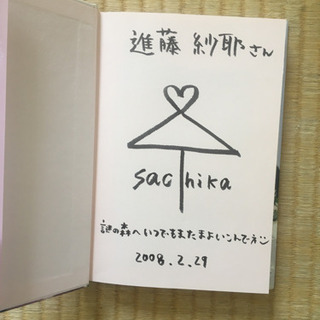 進藤 紗耶さん
sachika
謎の森へいつでもまたまよいこんでネ
2008.2.29